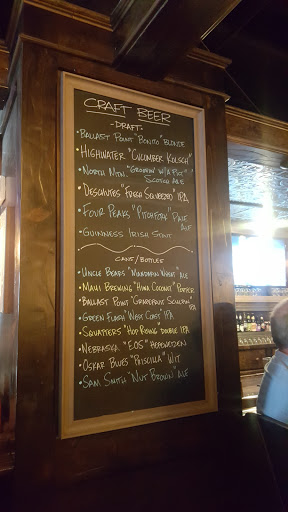 CRAFT BEER
-DRAFT-
BALLAST POINT "BONITO" BLONDE
HIGHWATER "CUCUMBER KOLSCH"
NORTH MTN. "GROOVIN' W/A PICT"
SCOTCH ALE
DESCHUTES "FRESH SQUEEZED" IPA
FOUR PEAKS "PITCHFORK" PALE
ALE
GUINNESS IRISH STOUT
CANS/BOTTLES
UNCLE BEARS "MANDARIN WHEAT" ALE
MAUI BREWING "HIWA COCONUT" PORTER
BALLAST POINT "GRAPEFRUIT SCULPIN"
IPA
GREEN FLASH "WEST COAST" IPA
SQUATTERS "HOP RISING" DOUBLE IPA
NEBRASKA "EOS" HEFEWEIZEN
OSKAR BLUES "PRISCILLA" WIT
SAM SMITH "NUT BROWN" ALE